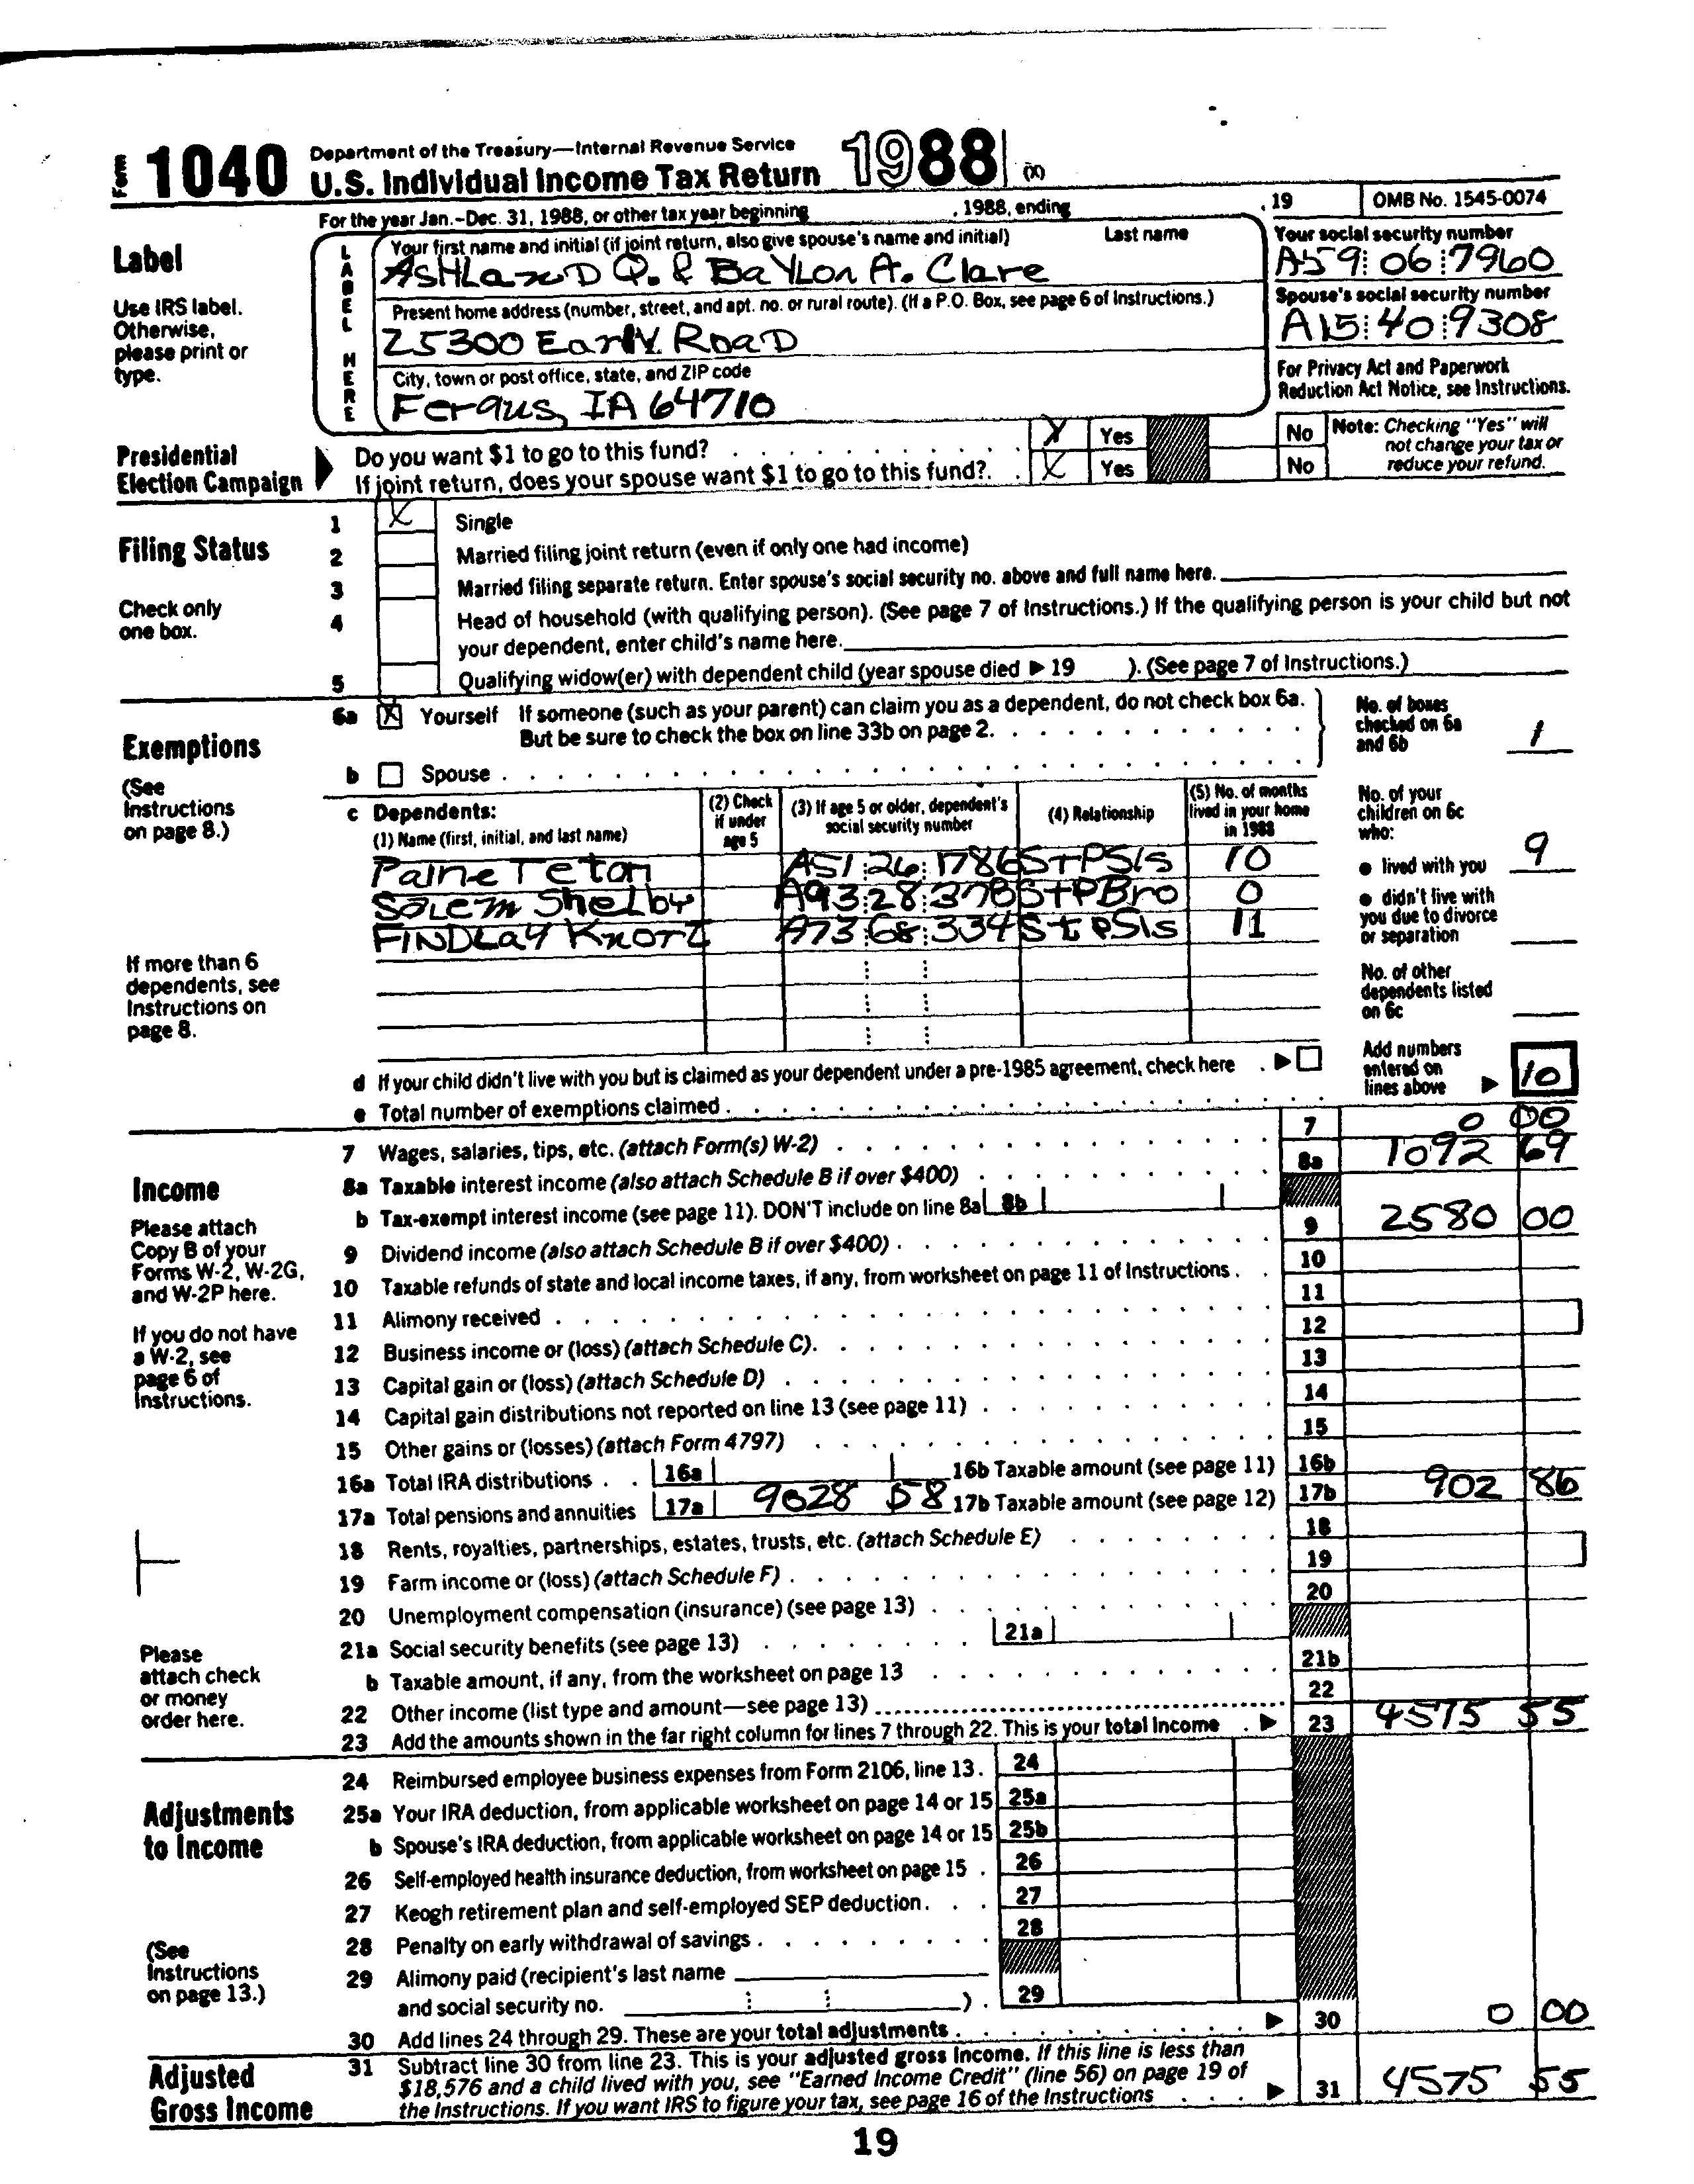 Form 1040 Department of the Treasury—Internal Revenue Service
U.S. Individual Income Tax Return 1988 (X)
For the year Jan.-Dec. 31, 1988, or other tax year beginning , 1988, ending , 19 OMB No. 1545-0074
Label
Use IRS label. Otherwise, please print or type.
LABEL HERE
Your first name and initial (if joint return, also give spouse's name and initial) Last name
AsHLanD Q. & BaYLon A. Clare
Your social security number
A59 06 7960
Present home address (number, street, and apt. no. or rural route). (If a P.O. Box, see page 6 of Instructions.)
25300 EarlY RoaD
Spouse's social security number
A15 40 9308
City, town or post office, state, and ZIP code
Fergus, IA 64710
For Privacy Act and Paperwork Reduction Act Notice, see Instructions.
Presidential Election Campaign
Do you want $1 to go to this fund? X Yes No
If joint return, does your spouse want $1 to go to this fund? X Yes No
Note: Checking "Yes" will not change your tax or reduce your refund.
Filing Status
Check only one box.
1 X Single
2 Married filing joint return (even if only one had income)
3 Married filing separate return. Enter spouse's social security no. above and full name here.
4 Head of household (with qualifying person). (See page 7 of Instructions.) If the qualifying person is your child but not
your dependent, enter child's name here.
5 Qualifying widow(er) with dependent child (year spouse died ▶ 19 ). (See page 7 of Instructions.)
Exemptions
(See Instructions on page 8.)
6a X Yourself If someone (such as your parent) can claim you as a dependent, do not check box 6a.
But be sure to check the box on line 33b on page 2.
b Spouse
No. of boxes checked on 6a and 6b 1
c Dependents:
(1) Name (first, initial, and last name)
(2) Check if under age 5
(3) If age 5 or older, dependent's social security number
(4) Relationship
(5) No. of months lived in your home in 1988
Paine Teton A51 26 1786 StPSis 10
SaLem SheLby A93 28 378 StPBro 0
FINDLaY Knort A73 68 334 StPSis 11
If more than 6 dependents, see Instructions on page 8.
No. of your children on 6c who:
● lived with you 9
● didn't live with you due to divorce or separation
No. of other dependents listed on 6c
d If your child didn't live with you but is claimed as your dependent under a pre-1985 agreement, check here ▶
e Total number of exemptions claimed
Add numbers entered on lines above ▶ 10
Income
Please attach Copy B of your Forms W-2, W-2G, and W-2P here.
If you do not have a W-2, see page 6 of Instructions.
7 Wages, salaries, tips, etc. (attach Form(s) W-2) 7 0 00
8a Taxable interest income (also attach Schedule B if over $400) 8a 1092 69
b Tax-exempt interest income (see page 11). DON'T include on line 8a 8b
9 Dividend income (also attach Schedule B if over $400) 9 2580 00
10 Taxable refunds of state and local income taxes, if any, from worksheet on page 11 of Instructions 10
11 Alimony received 11
12 Business income or (loss) (attach Schedule C) 12
13 Capital gain or (loss) (attach Schedule D) 13
14 Capital gain distributions not reported on line 13 (see page 11) 14
15 Other gains or (losses) (attach Form 4797) 15
16a Total IRA distributions 16a 16b Taxable amount (see page 11) 16b
17a Total pensions and annuities 17a 9628 58 17b Taxable amount (see page 12) 17b 902 86
18 Rents, royalties, partnerships, estates, trusts, etc. (attach Schedule E) 18
19 Farm income or (loss) (attach Schedule F) 19
20 Unemployment compensation (insurance) (see page 13) 20
21a Social security benefits (see page 13) 21a
b Taxable amount, if any, from the worksheet on page 13 21b
22 Other income (list type and amount—see page 13) 22
23 Add the amounts shown in the far right column for lines 7 through 22. This is your total income ▶ 23 4575 55
Please attach check or money order here.
Adjustments to Income
(See Instructions on page 13.)
24 Reimbursed employee business expenses from Form 2106, line 13. 24
25a Your IRA deduction, from applicable worksheet on page 14 or 15 25a
b Spouse's IRA deduction, from applicable worksheet on page 14 or 15 25b
26 Self-employed health insurance deduction, from worksheet on page 15 26
27 Keogh retirement plan and self-employed SEP deduction 27
28 Penalty on early withdrawal of savings 28
29 Alimony paid (recipient's last name
and social security no. ) 29
30 Add lines 24 through 29. These are your total adjustments ▶ 30 0 00
Adjusted Gross Income
31 Subtract line 30 from line 23. This is your adjusted gross income. If this line is less than
$18,576 and a child lived with you, see "Earned Income Credit" (line 56) on page 19 of
the Instructions. If you want IRS to figure your tax, see page 16 of the Instructions ▶ 31 4575 55
19